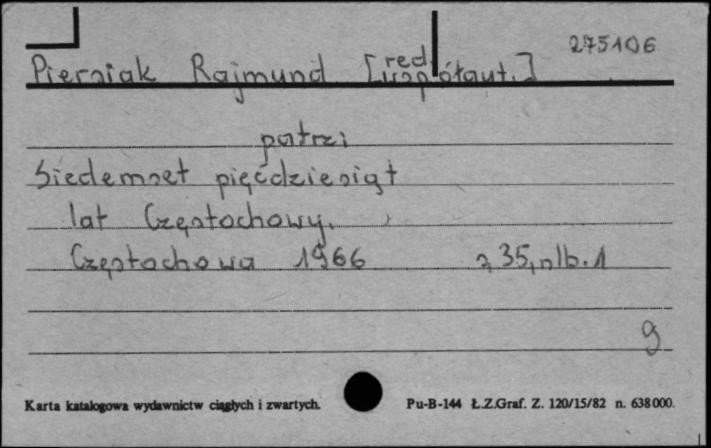 275106
Pierniak Rajmund [red. współaut.]
patrz:
Siedemset pięćdziesiąt
lat Częstochowy.
Częstochowa 1966 s 35, nlb. 1
g
Karta katalogowa wydawnictw ciągłych i zwartych. Pu-B-144 Ł.Z.Graf. Z. 120/15/82 n. 638000.